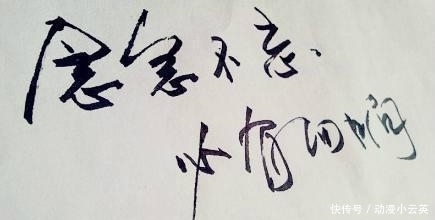 念念不忘
必有回响
快传号 / 动漫小云英